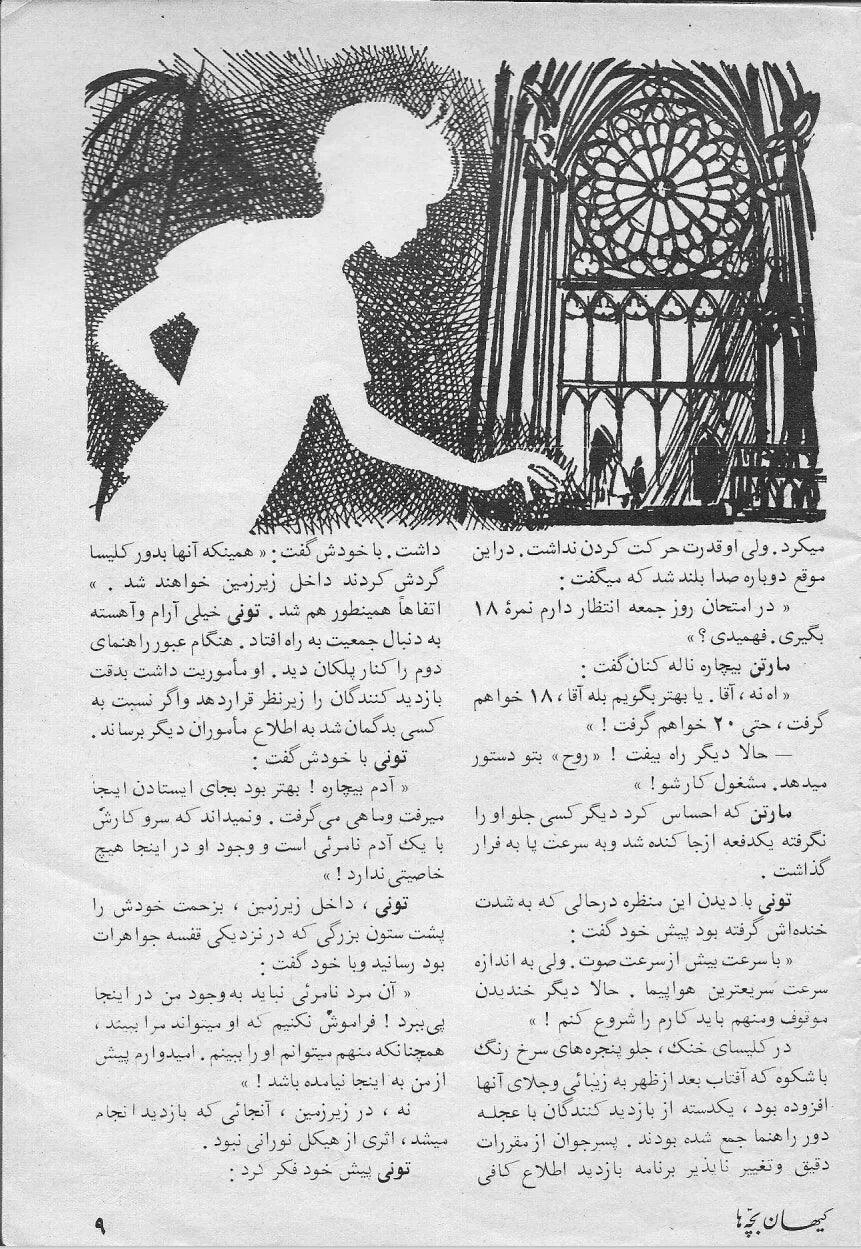 میکرد. ولی او قدرت حرکت کردن نداشت. دراین
موقع دوباره صدا بلند شد که میگفت:
« در امتحان روز جمعه انتظار دارم نمرهٔ ۱۸
بگیری. فهمیدی؟»
مارتن بیچاره ناله کنان گفت:
« اه نه، آقا. یا بهتر بگویم بله آقا، ۱۸ خواهم
گرفت، حتی ۲۰ خواهم گرفت! »
— حالا دیگر راه بیفت! «روح» بتو دستور
میدهد. مشغول کار شو! »
مارتن که احساس کرد دیگر کسی جلو او را
نگرفته یکدفعه ازجا کنده شد وبه سرعت پا به فرار
گذاشت.
تونی با دیدن این منظره درحالی که به شدت
خنده‌اش گرفته بود پیش خود گفت:
« با سرعت بیش از سرعت صوت. ولی به اندازه
سرعت سریعترین هواپیما. حالا دیگر خندیدن
موقوف ومنهم باید کارم را شروع کنم! »
در کلیسای خنک، جلو پنجره‌های سرخ رنگ
باشکوه که آفتاب بعد ازظهر به زیبائی وجلای آنها
افزوده بود، یکدسته از بازدید کنندگان با عجله
دور راهنما جمع شده بودند. پسرجوان از مقررات
دقیق وتغییر ناپذیر برنامه بازدید اطلاع کافی
داشت. با خودش گفت: « همینکه آنها بدور کلیسا
گردش کردند داخل زیرزمین خواهند شد. »
اتفاهاً همینطور هم شد. تونی خیلی آرام وآهسته
به دنبال جمعیت به راه افتاد. هنگام عبور راهنمای
دوم را کنار پلکان دید. او مأموریت داشت بدقت
بازدید کنندگان را زیرنظر قراردهد واگر نسبت به
کسی بدگمان شد به اطلاع مأموران دیگر برساند.
تونی با خودش گفت:
« آدم بیچاره! بهتر بود بجای ایستادن اینجا
میرفت وماهی می‌گرفت. ونمیداند که سروکارش
با یک آدم نامرئی است و وجود او در اینجا هیچ
خاصیتی ندارد! »
تونی، داخل زیرزمین، بزحمت خودش را
پشت ستون بزرگی که در نزدیکی قفسه جواهرات
بود رسانید وبا خود گفت:
« آن مرد نامرئی نباید به وجود من در اینجا
پی‌ببرد! فراموش نکنیم که او میتواند مرا ببیند،
همچنانکه منهم میتوانم او را ببینم. امیدوارم پیش
از من به اینجا نیامده باشد! »
نه، در زیرزمین، آنجائی که بازدید انجام
میشد، اثری از هیکل نورانی نبود.
تونی پیش خود فکر کرد:
کیهان بچّه‌ها
۹